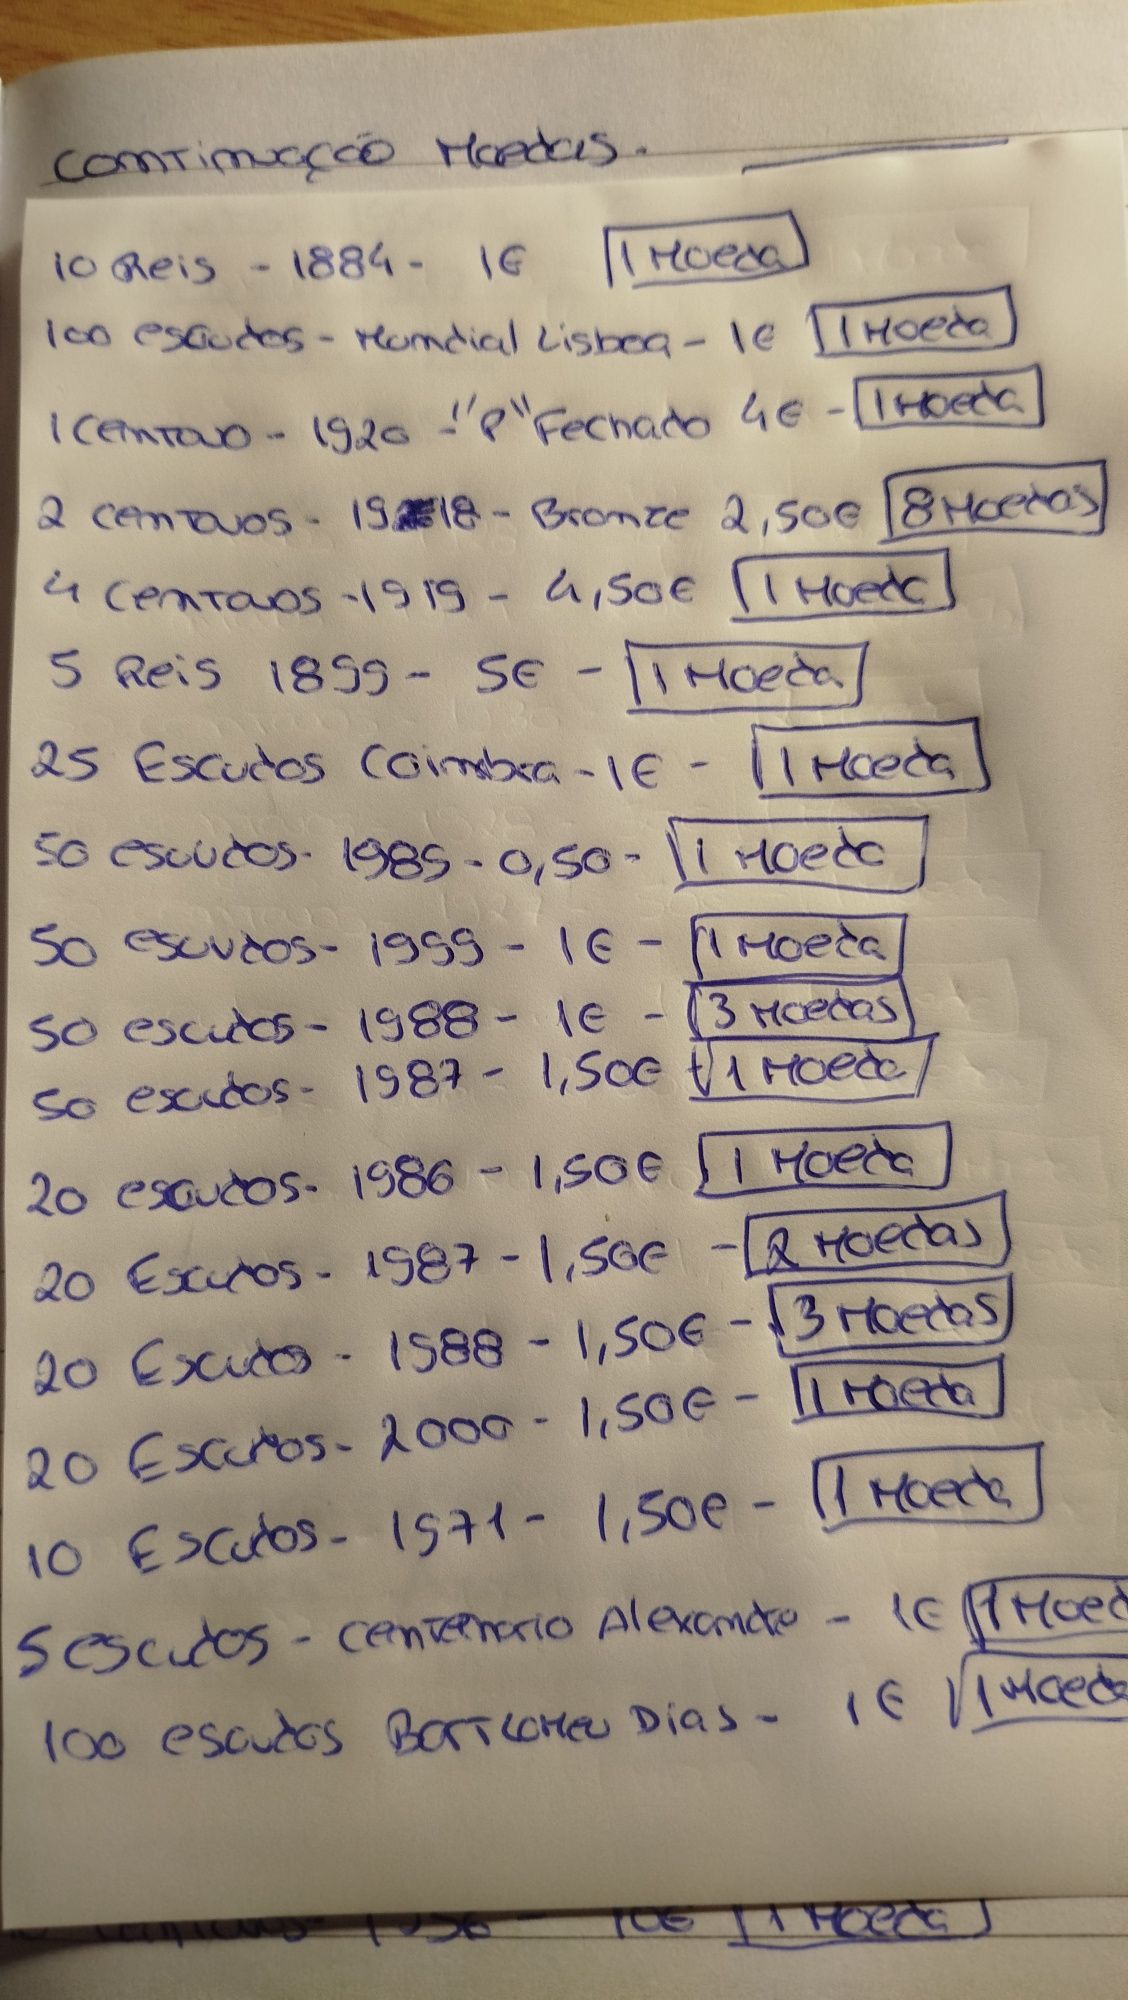 Continuação Moedas.
10 Reis - 1884 - 1€ 1 Moeda
100 escudos - Mundial Lisboa - 1€ 1 Moeda
1 Centavo - 1920 - "P" Fechado 4€ - 1 Moeda
2 centavos - 1918 - Bronze 2,50€ 8 Moedas
4 Centavos - 1919 - 4,50€ 1 Moeda
5 Reis 1899 - 5€ - 1 Moeda
25 Escudos Coimbra - 1€ - 1 Moeda
50 escudos - 1985 - 0,50 - 1 Moeda
50 escudos - 1999 - 1€ - 1 Moeda
50 escudos - 1988 - 1€ - 3 Moedas
50 escudos - 1987 - 1,50€ 1 Moeda
20 escudos - 1986 - 1,50€ 1 Moeda
20 Escudos - 1987 - 1,50€ - 2 Moedas
20 Escudos - 1988 - 1,50€ - 3 Moedas
20 Escudos - 2000 - 1,50€ - 1 Moeda
10 Escudos - 1971 - 1,50€ - 1 Moeda
5 escudos - Centenario Alexandre - 1€ 1 Moed
100 escudos Bartlomeu Dias - 1€ 1 Moeda
10€ 1 Moeda